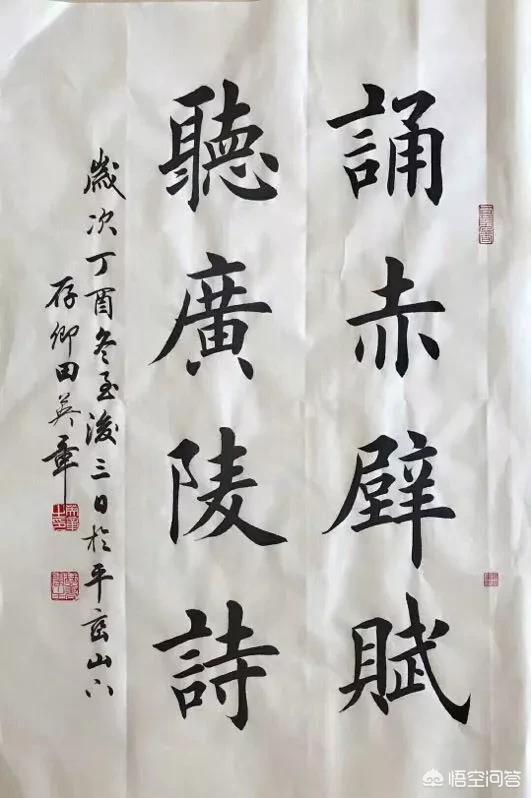 誦赤壁賦
聽廣陵詩
歲次丁酉冬至後三日於平谷山下
存卿田英章
悟空问答